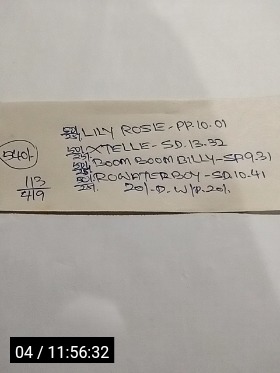 50/- 25/- LILY ROSIE-PP.10.01
50/- 25/- XTELLE-SD.13.32
540/- 50/- 25/- BOOM BOOM BILLY-SP.9.31
50/- 25/- ROWATERBOY-SD.10.41
113/419 20/-D. W/P.20/-
04 / 11:56:32